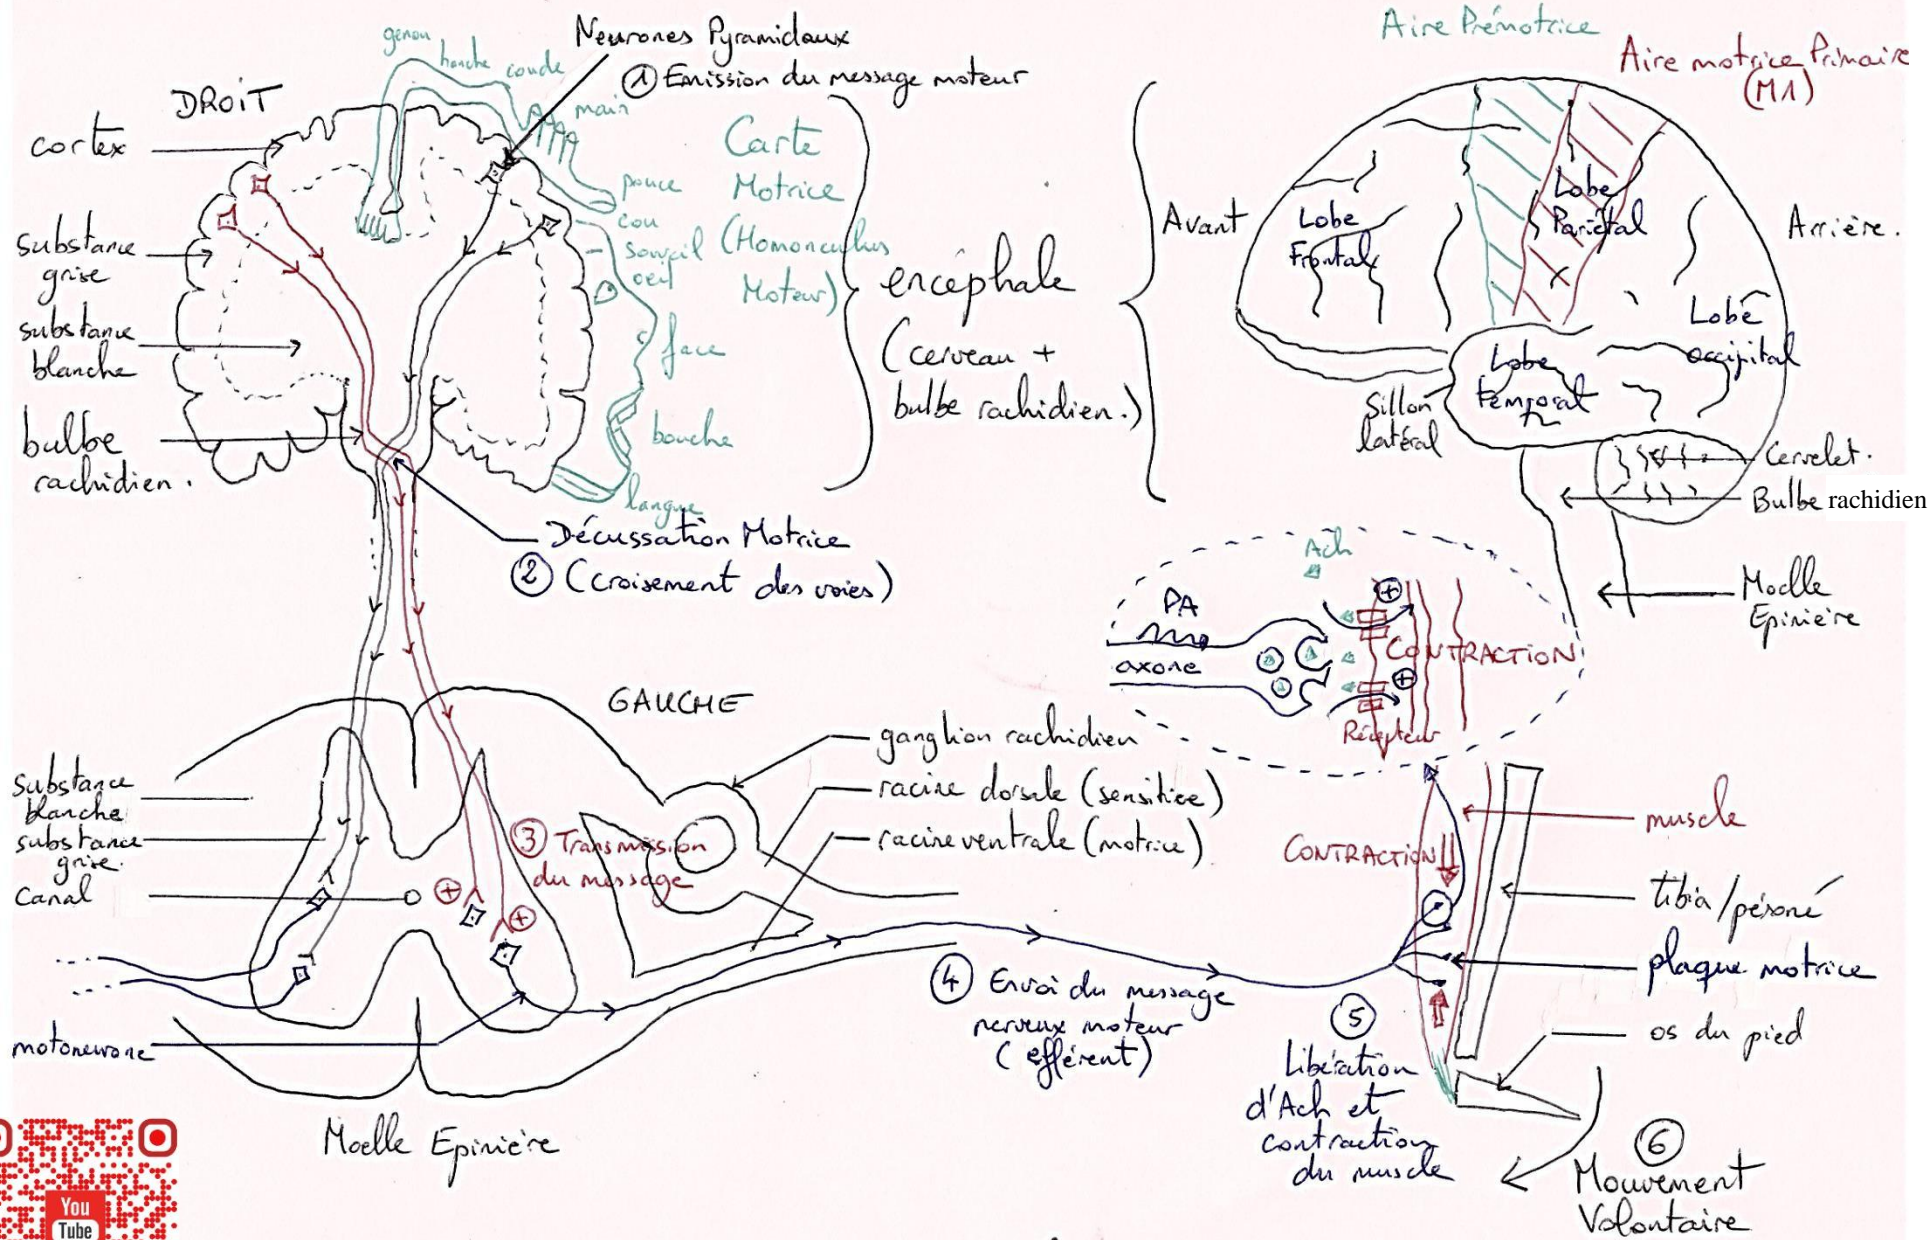 DROIT
cortex
substance
grise
substance
blanche
bulbe
rachidien.
genou
hanche
coude
main
pouce
cou
sourcil
oeil
face
bouche
langue
Neurones Pyramidaux
① Emission du message moteur
Carte
Motrice
(Homonculus
Moteur)
encéphale
(cerveau +
bulbe rachidien.)
Décussation Motrice
② (croisement des voies)
Aire Prémotrice
Aire motrice Primaire
(M1)
Avant
Arrière.
Lobe
Frontal
Lobe
Pariétal
Lobe
occipital
Lobe
Temporal
Sillon
latéral
Cervelet.
Bulbe rachidien
Moelle
Epinière
Ach
PA
axone
CONTRACTION
Récepteur
GAUCHE
ganglion rachidien
racine dorsale (sensitive)
racine ventrale (motrice)
substance
blanche
substance
grise.
canal
motoneurone
③ Transmission
du message
Moelle Epinière
④ Envoi du message
nerveux moteur
(efférent)
CONTRACTION
muscle
tibia/péroné
plaque motrice
os du pied
⑤
Libération
d'Ach et
contraction
du muscle
⑥
Mouvement
Volontaire
You
Tube